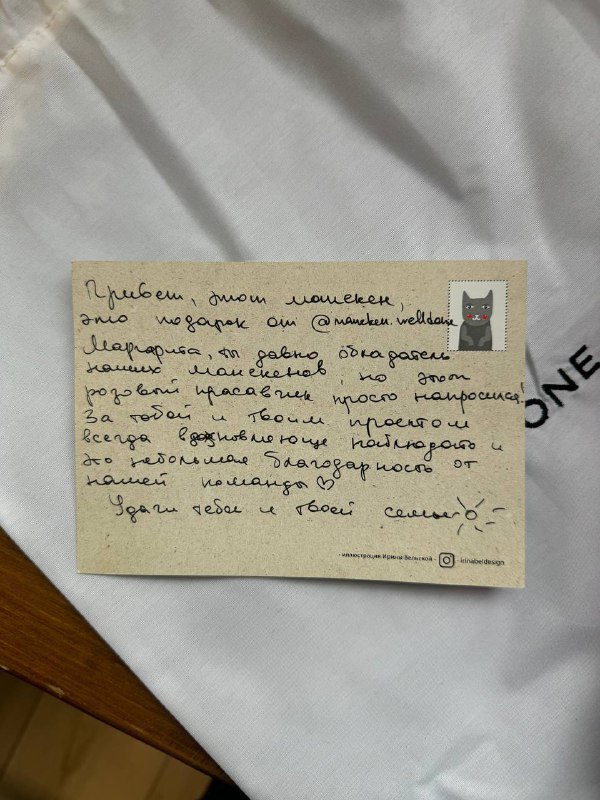 Привет, этот манекен,
это подарок от @maneken.welldone
Маргарита, ты давно обладатель
наших манекенов, но этот
розовый красавчик просто напросился!
За тобой и твоим проектом
всегда вдохновляюще наблюдать и
это небольшая благодарность от
нашей команды ♡
Удачи тебе и твоей семье
- иллюстрация Ирина Бельской - - irinabeldesign
ONE